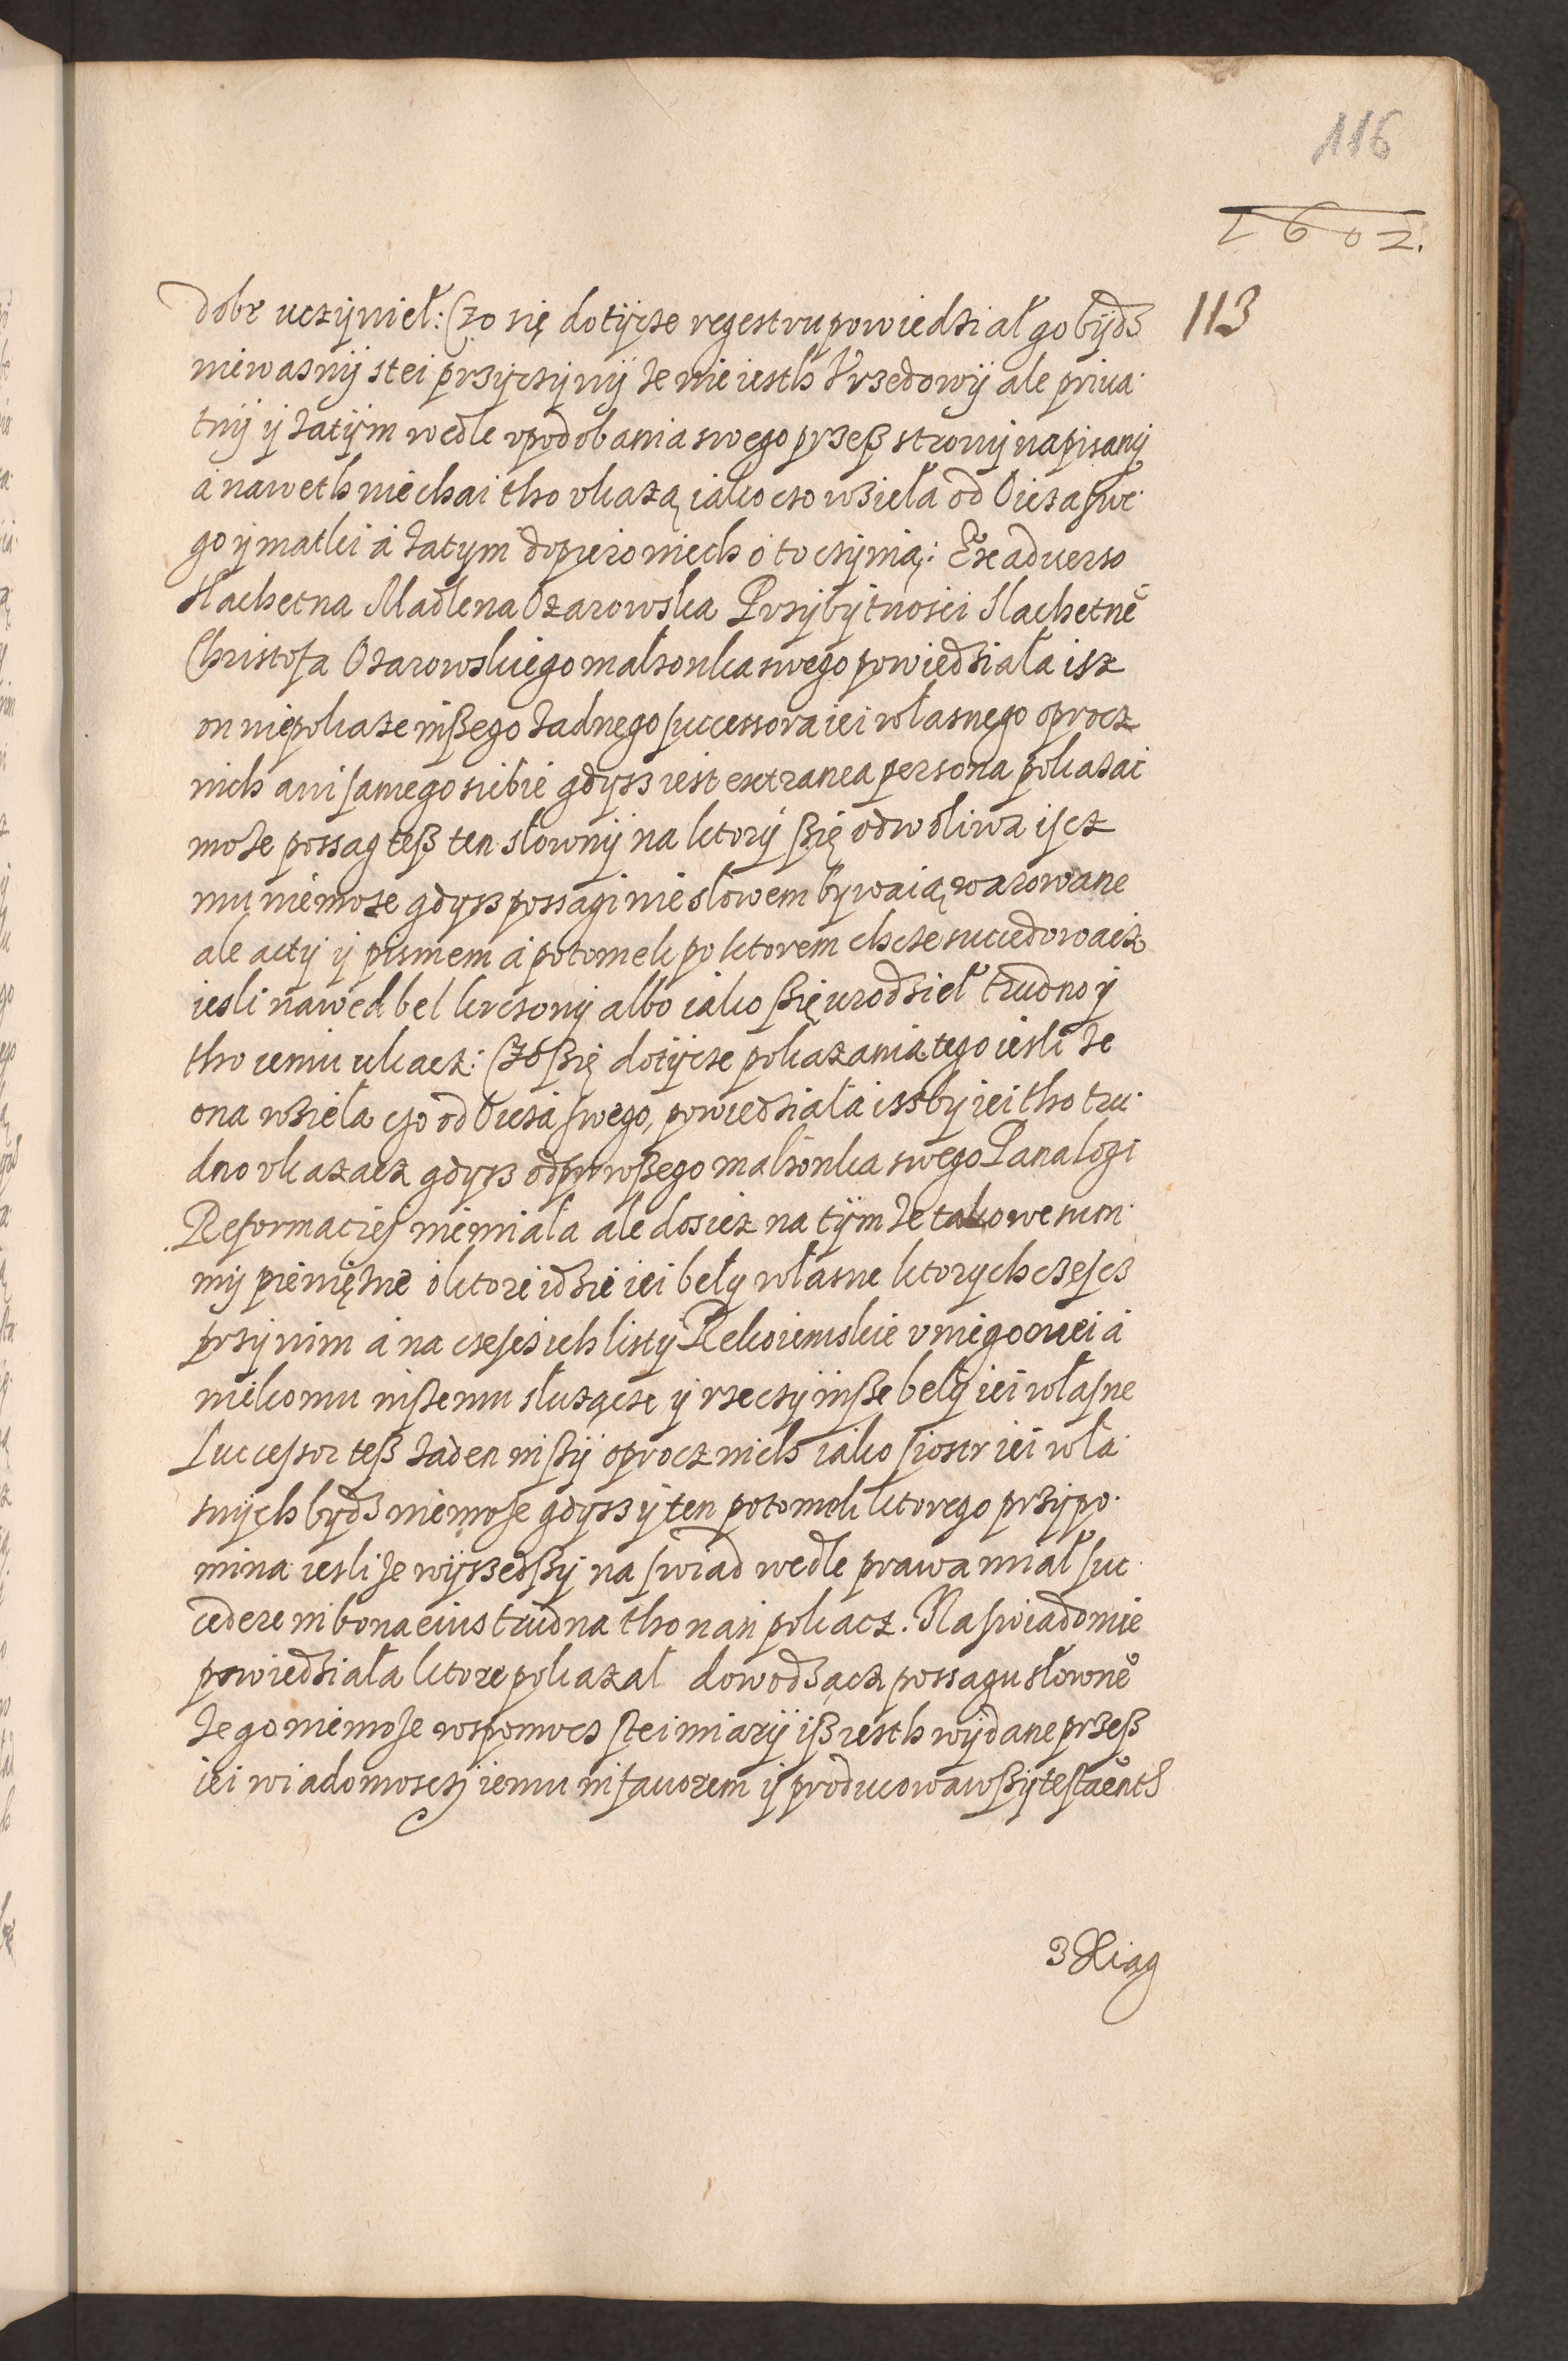 116
1602.
113
dobr uczynieł: Czo się dotÿcze regestru powiedział go bÿdz
niewaznÿ stei przÿczÿnÿ ze nie iesth Vrzedowÿ ale priua
tnÿ ÿ zatÿm wedle vpodobania swego przesz stronÿ napisanÿ
a naweth niechai tho vkazą iako czo wzieła od Oicza swe
go ÿ matki a zatym dopiero niech o to czÿnią: Ex aduerso
Slachetna Madlena Ozarowska Przÿbÿtnosci Slachetne
Christofa Ozarowskiego malzonka swego powiedziała isz
on niepokaze inszego zadnego successora iei własnego oprocz
nich ani samego siebie gdysz iest extranea persona pokazac
moze possag tesz ten słownÿ na ktorÿ się odwoliwa iscz
mu niemoze gdysz possagi nie słowem bywaią warowane
ale actÿ ÿ pismem a potomek po ktorem chcze succedowacz
iesli nawed bel krczonÿ albo iako się urodzieł trudno ÿ
tho iemu ukacz: Czo się dotÿcze pokazania tego iesli ze
ona wzieła czo od Oicza swego, powiedziała isz by iei tho tru
dno vkazacz gdysz od pirwszego malzonka swego Pana Logi
Reformaciej niemiala ale dosicz na tÿm ze takowe sum
mÿ pieniężne o ktore idzie iei beły własne ktorych częscz
przÿ nim a na częscz ich listy Rekoiemskie v niego a
nikomu inszemu słuzącze ÿ rzeczÿ insze belÿ iei własne
Successor tesz zaden inszÿ oprocz nich iako siostr iei wła
snÿch bÿdz niemoze gdysz ÿ ten potomek ktorego przÿpo
mina iesli ze wÿszedszÿ na swiad wedle prawa miał suc
cedere in bona eius trudna tho nan pokacz. Na swiadomie
powiedziała ktore pokazał dowodzącz possagu słowne
ze go niemoze wspomocz stei miarÿ isz iesth wÿdane przesz
iei wiadomosczÿ iemu in fauorem ÿ producowawszÿ testaenth
3 Xiąg